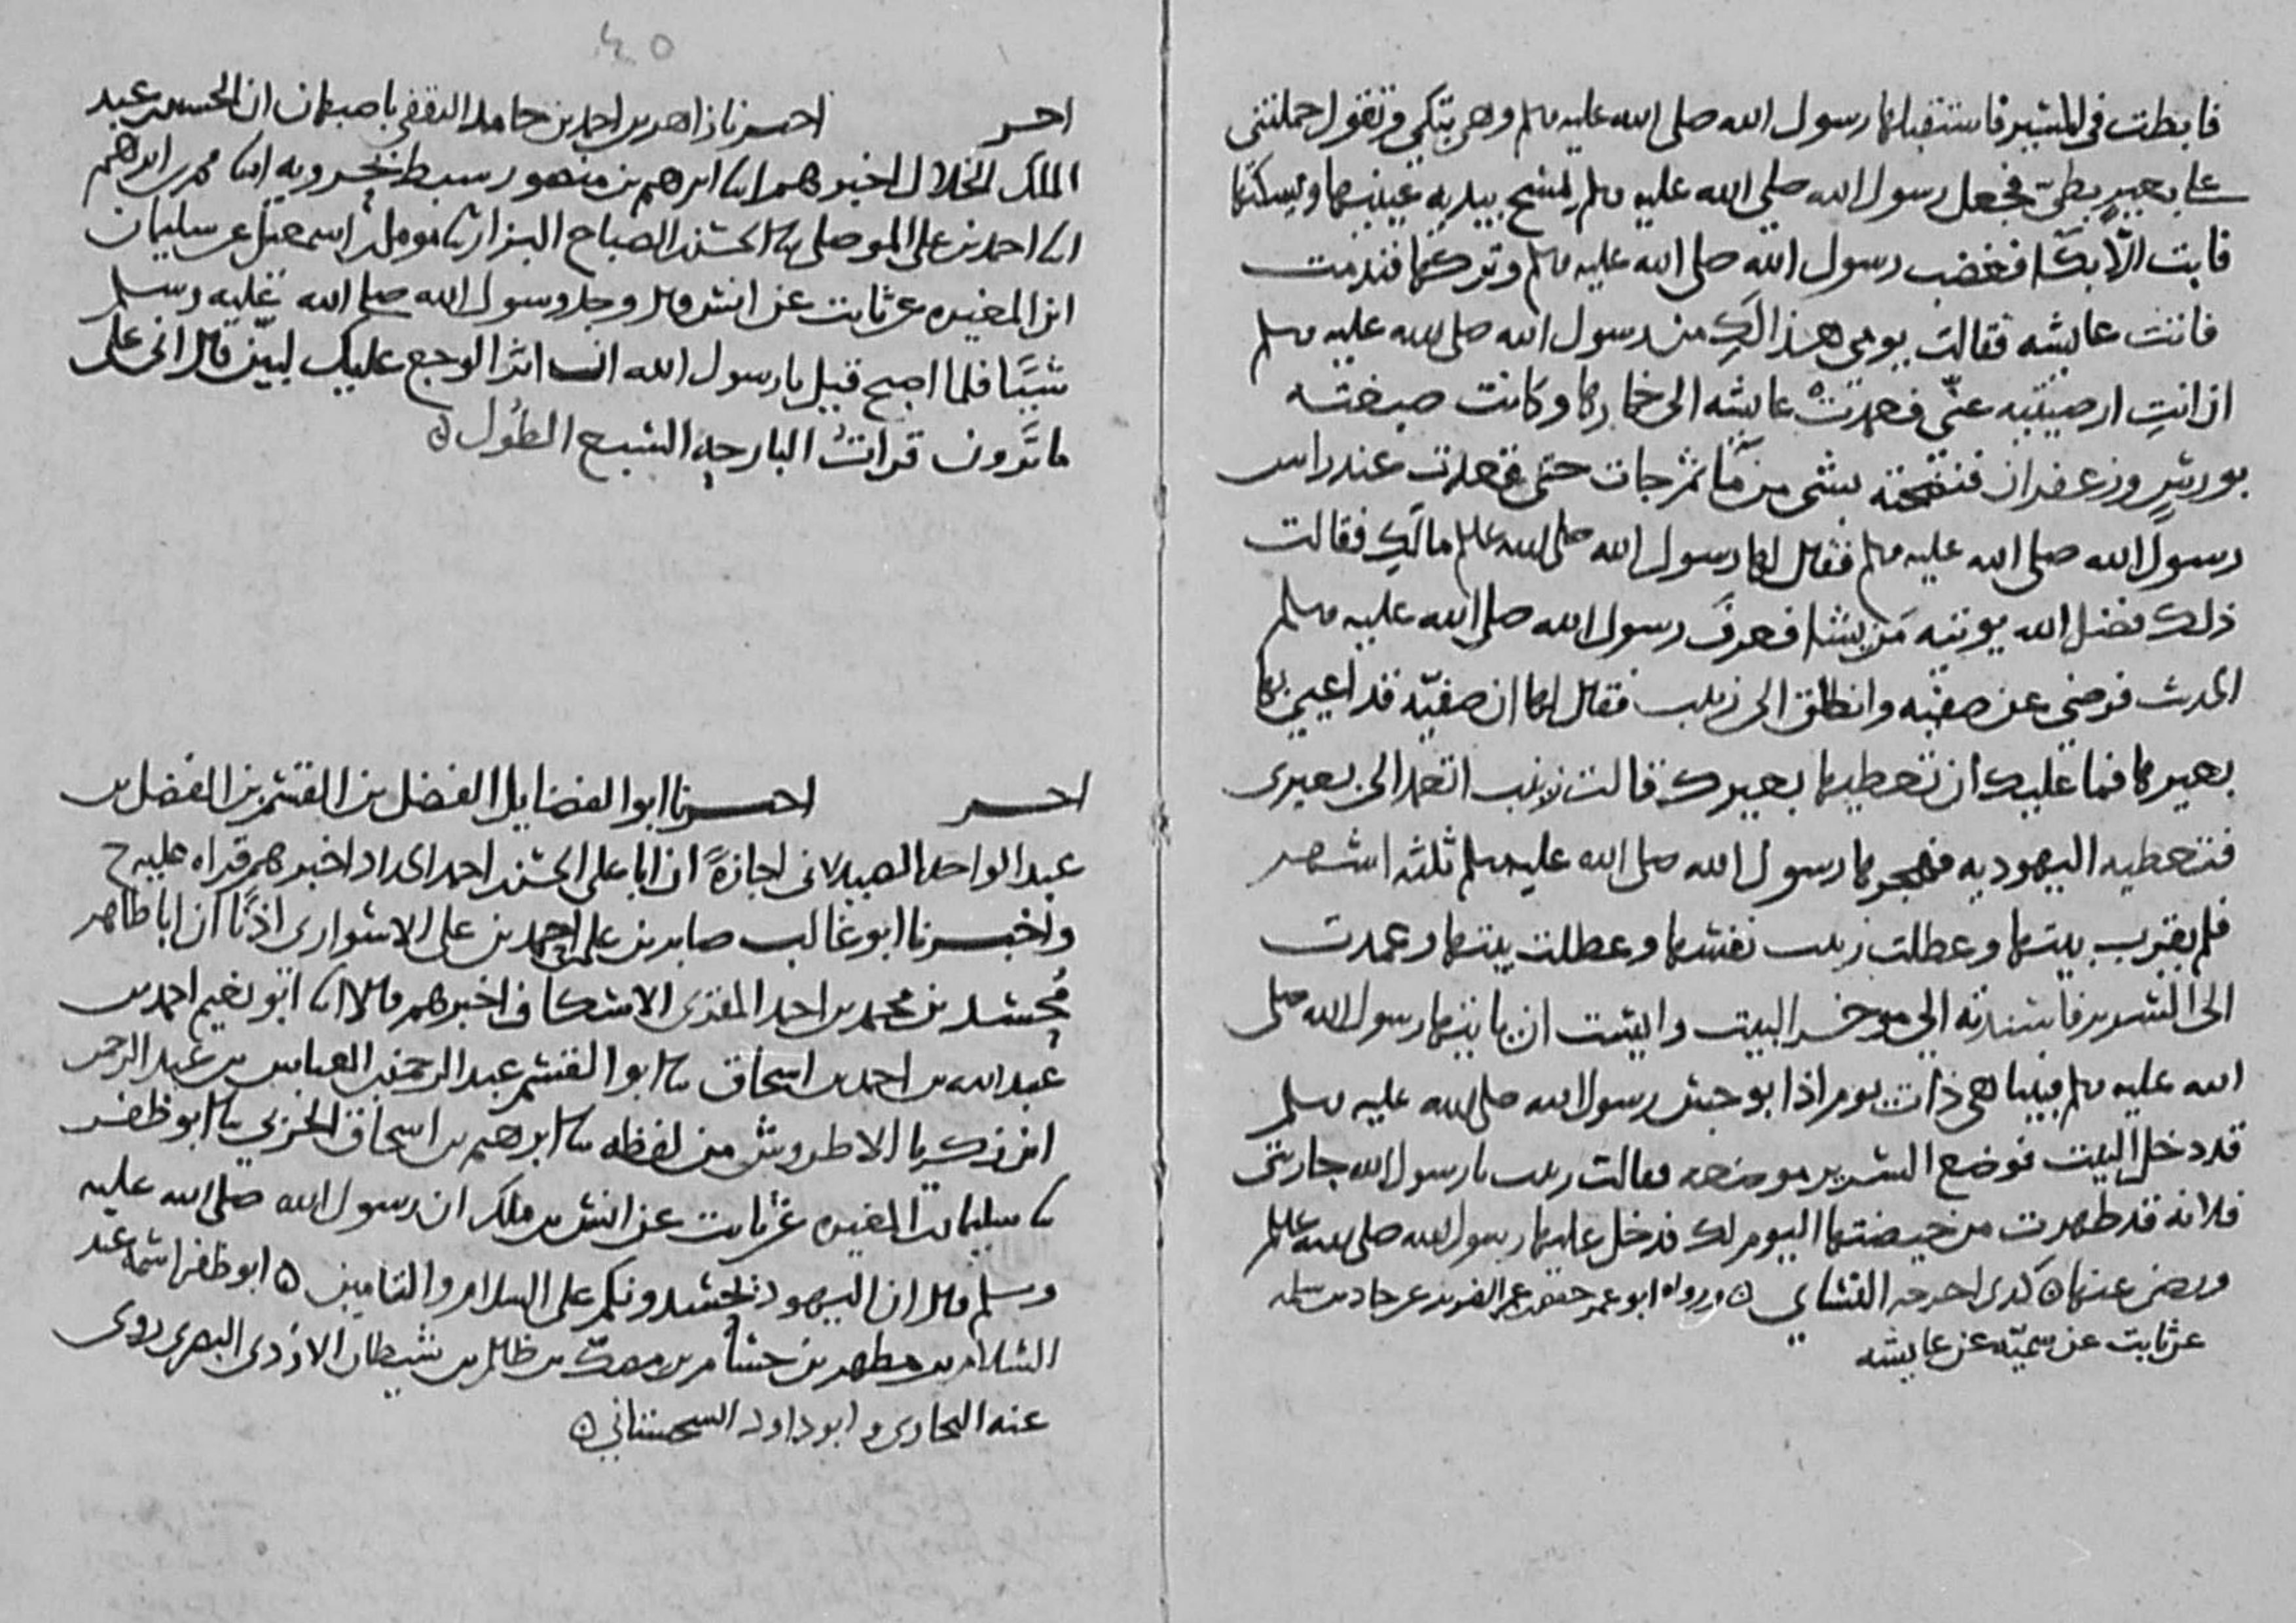 فابطت في المسير فاستقبلها رسول الله صلى الله عليه وسلم وهي تبكي وتقول حملتني
على بعير بطئ فجعل رسول الله صلى الله عليه وسلم يمسح بيديه عينيها ويسكتها
فابت الا بكا فغضب رسول الله صلى الله عليه وسلم وتركها فندمت
فاتت عايشه فقالت يومي هذا لك من رسول الله صلى الله عليه وسلم
ان انت ارضيتيه عني فعمدت عايشه الى خمارها وكانت صبغته
بورس وزعفران فنضحته بشي من ما ثم جات حتى قعدت عند راس
رسول الله صلى الله عليه وسلم فقال لها رسول الله صلى الله عليه وسلم مالك فقالت
ذلك فضل الله يوتيه من يشا فعرف رسول الله صلى الله عليه وسلم
الحديث فرضي عن صفيه وانطلق الى زينب فقال لها ان صفيه قد اعيى بها
بعيرها فما عليك ان تعطيها بعيرك قالت زينب اتعمد الى بعيري
فتعطيه اليهوديه فهجرها رسول الله صلى الله عليه وسلم ثلثه اشهر
فلم يقرب بيتها وعطلت زينب نفسها وعطلت بيتها وعمدت
الى السرير فاسندته الى موخر البيت وايست ان ياتيها رسول الله صلى
الله عليه وسلم فبينا هي ذات يوم اذا بوجس رسول الله صلى الله عليه وسلم
قد دخل البيت فوضع السرير موضعه فقالت زينب يا رسول الله جاريتي
فلانه قد طهرت من حيضتها اليوم لك فدخل عليها رسول الله صلى الله عليه وسلم
ورضى عنها ٥ كذى اخرجه النساي ٥ ورواه ابو عمر حفص بن عمر الضرير عن حماد بن سلمه
عن ثابت عن سميه عن عايشه
٤٥
اخبر اخبرنا زاهر بن احمد بن حامد الثقفي باصبهان ان الحسين بن عبد
الملك الخلال اخبرهم ابنا ابرهيم بن منصور سبط بحرويه ابنا محمد بن ابرهيم
ابنا احمد بن علي الموصلي ثنا الحسن بن الصباح البزار ثنا مومل بن اسمعيل عن سليمان
ابن المغيره عن ثابت عن انس قال وجد رسول الله صلى الله عليه وسلم
شيئا فلما اصبح قيل يا رسول الله ان اثر الوجع عليك لبين قال اني على
ما ترون قرات البارحه السبع الطول ٥
اخبر اخبرنا ابو الفضايل الفضل بن القسم بن الفضل بن
عبد الواحد الصيدلاني اجازة ان ابا علي الحسن بن احمد الحداد اخبرهم قراه عليه ح
واخبرنا ابو غالب صابر بن علي بن احمد بن علي الاسواري اذنا ان ابا طاهر
محسد بن محمد بن احمد المقرى الاسكاف اخبرهم قالا ابنا ابو نعيم احمد بن
عبد الله بن احمد بن اسحاق ثنا ابو القسم عبد الرحمن بن العباس بن عبد الرحمن
ابن زكريا الاطروش من لفظه ثنا ابرهيم بن اسحاق الحربي ثنا ابو ظفر
ثنا سليمان بن المغيره عن ثابت عن انس بن ملك ان رسول الله صلى الله عليه
وسلم قال ان اليهود تحسدونكم على السلام والتامين ٥ ابو ظفر اسمه عبد
السلام بن مطهر بن حسام بن مصك بن ظالم بن شيطان الازدي البصري روى
عنه البخاري وابو داود السجستاني ٥